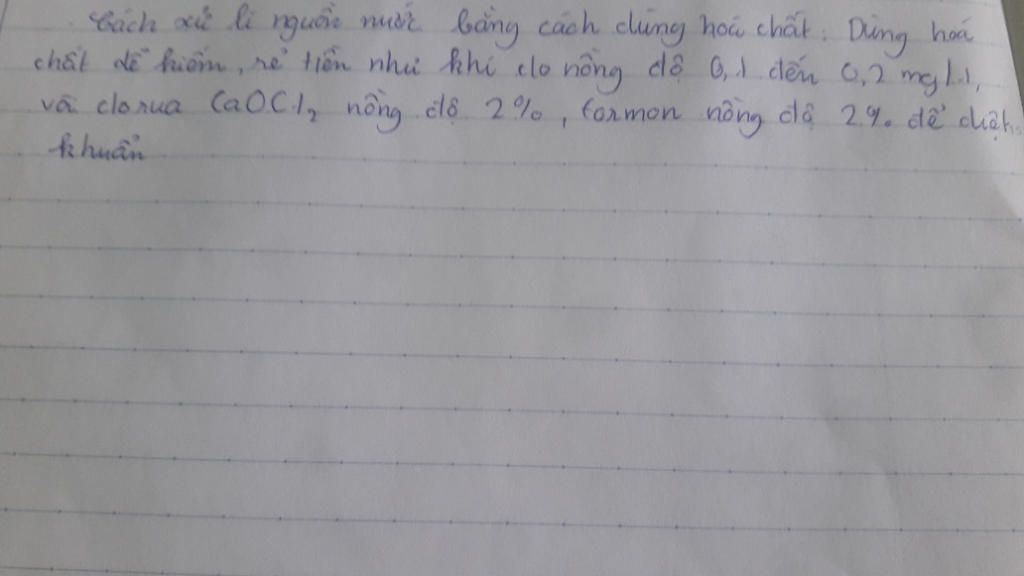 Cách xử lí nguồn nước bằng cách dùng hoá chất: Dùng hoá
chất dễ kiếm, rẻ tiền như khí clo nồng độ 0,1 đến 0,2 mg/l,
vôi clorua CaOCl₂ nồng độ 2%, formon nồng độ 2% để diệt
khuẩn